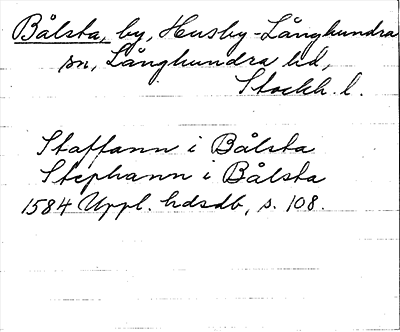 Bålsta, by, Husby-Långhundra
sn, Långhundra hd,
Stockh. l.
Staffann i Bålsta
Stephann i Bålsta
1584 Uppl. hdsdb, s. 108.